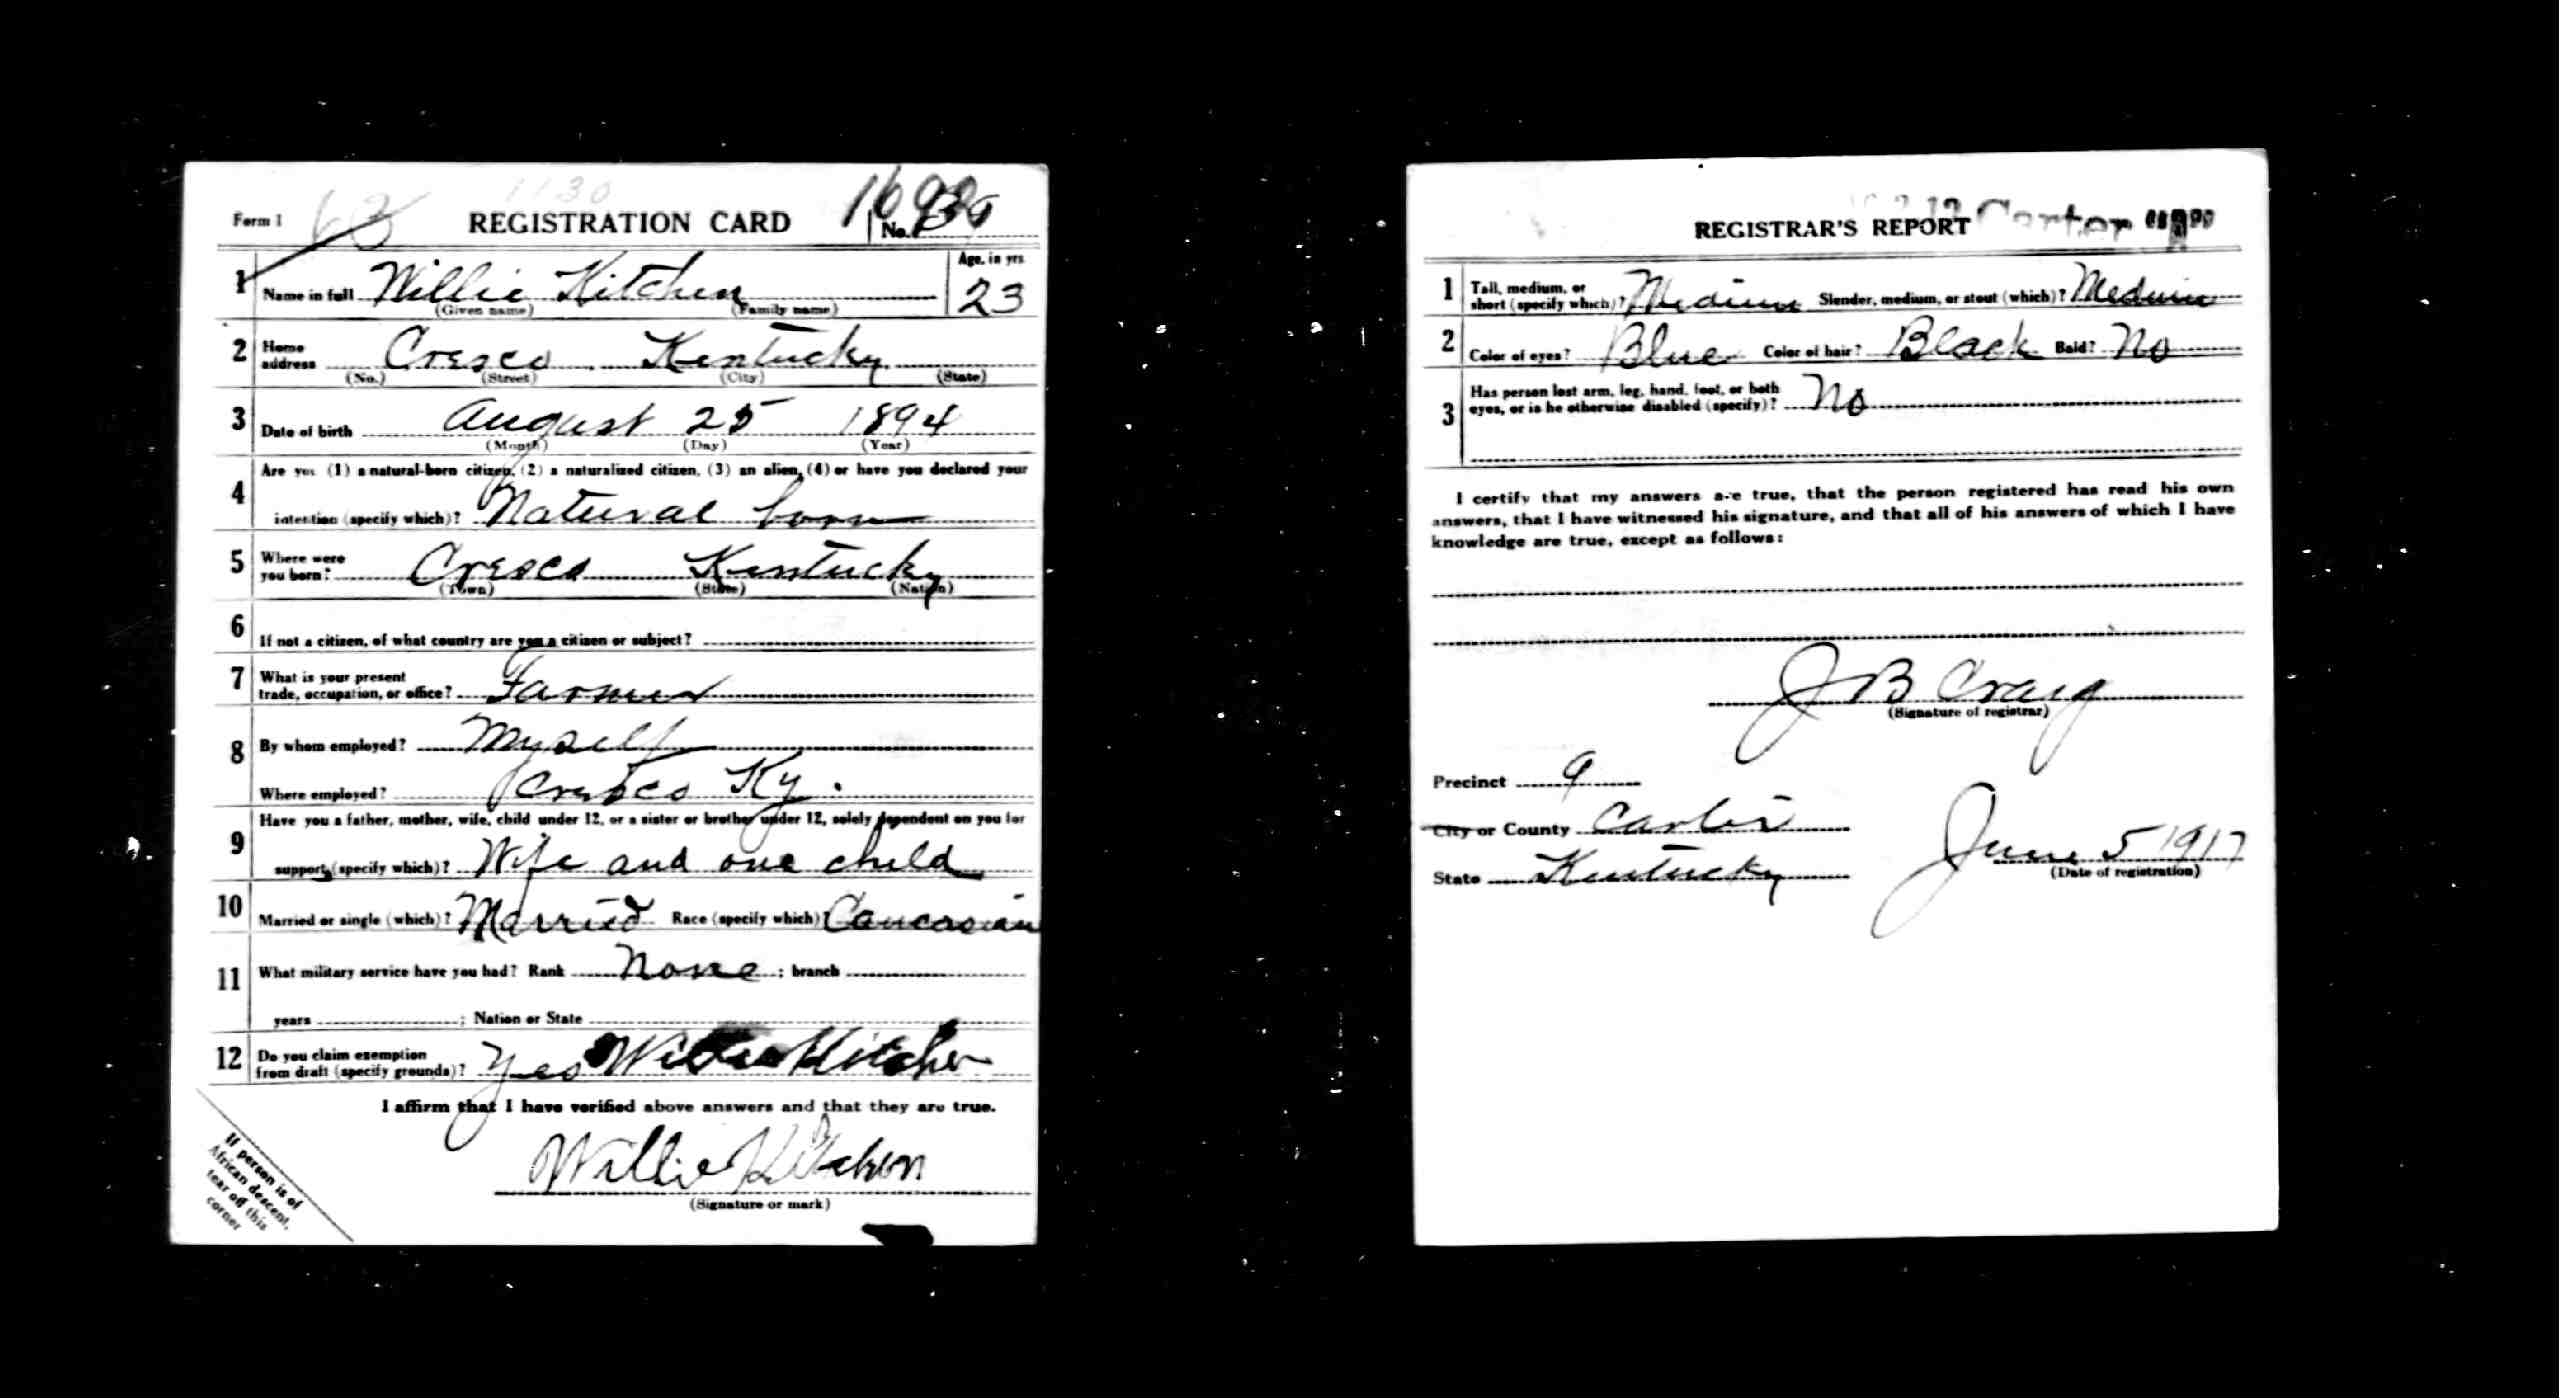 1130
Form 1 63 REGISTRATION CARD No. 30
1 Name in full Willie Kitchen Age, in yrs 23
(Given name) (Family name)
2 Home address Cresco, Kentucky
(No.) (Street) (City) (State)
3 Date of birth August 25 1894
(Month) (Day) (Year)
4 Are you (1) a natural-born citizen, (2) a naturalized citizen, (3) an alien, (4) or have you declared your
intention (specify which)? Natural born
5 Where were you born? Cresco Kentucky
(Town) (State) (Nation)
6 If not a citizen, of what country are you a citizen or subject?
7 What is your present trade, occupation, or office? Farmer
8 By whom employed? Myself
Where employed? Cresco Ky.
9 Have you a father, mother, wife, child under 12, or a sister or brother under 12, solely dependent on you for
support (specify which)? Wife and one child
10 Married or single (which)? Married Race (specify which)? Caucasian
11 What military service have you had? Rank None ; branch
years ; Nation or State
12 Do you claim exemption from draft (specify grounds)? Yes Willie Kitchen
I affirm that I have verified above answers and that they are true.
Willie Kitchen
(Signature or mark)
If person is of
African descent,
tear off this
corner
REGISTRAR'S REPORT Carter
1 Tall, medium, or short (specify which)? Medium Slender, medium, or stout (which)? Medium
2 Color of eyes? Blue Color of hair? Black Bald? No
3 Has person lost arm, leg, hand, foot, or both
eyes, or is he otherwise disabled (specify)? No
I certify that my answers are true, that the person registered has read his own
answers, that I have witnessed his signature, and that all of his answers of which I have
knowledge are true, except as follows:
J B Craig
(Signature of registrar)
Precinct 9
City or County Carter
State Kentucky June 5 1917
(Date of registration)